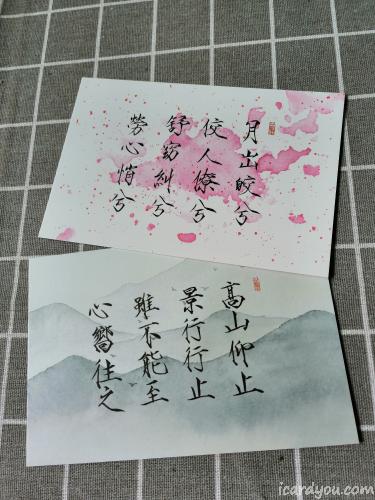 月出皎兮
佼人僚兮
舒窈糾兮
勞心悄兮
高山仰止
景行行止
雖不能至
心嚮往之
icardyou.com